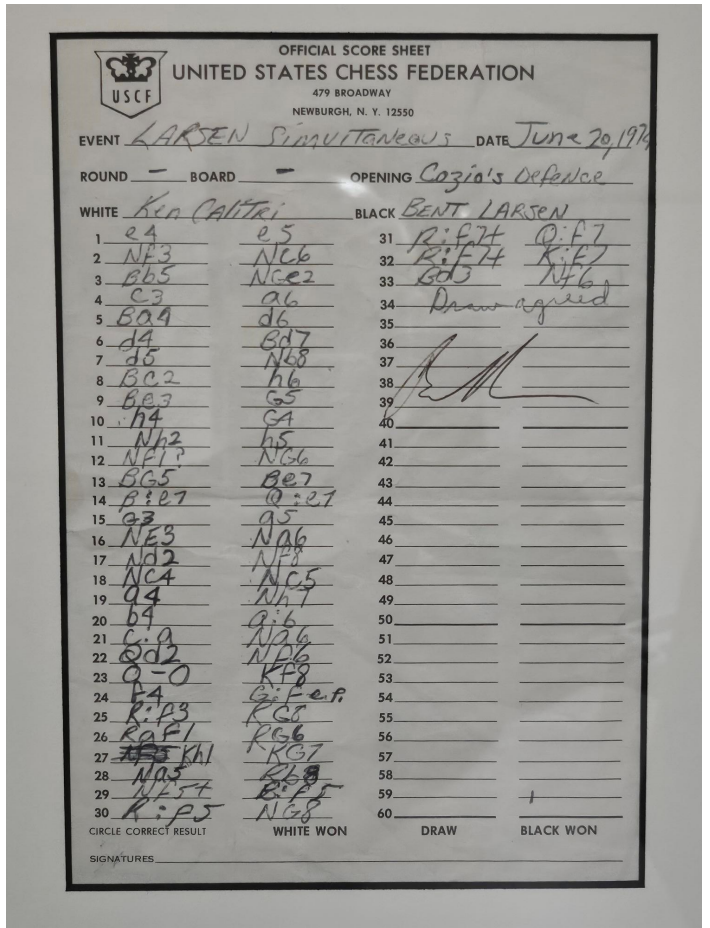 OFFICIAL SCORE SHEET
USCF
UNITED STATES CHESS FEDERATION
479 BROADWAY
NEWBURGH, N. Y. 12550
EVENT LARSEN SIMULTANEOUS DATE June 20, 1974
ROUND - BOARD - OPENING Cozio's Defence
WHITE Ken CALITRI BLACK BENT LARSEN
1 e4 e5
2 NF3 NC6
3 Bb5 NGe2
4 C3 a6
5 Ba4 d6
6 d4 Bd7
7 d5 Nb8
8 BC2 h6
9 Be3 G5
10 h4 G4
11 Nh2 h5
12 NF1? NG6
13 BG5 Be7
14 B:e7 Q:e7
15 G3 a5
16 NE3 Na6
17 Nd2 Nf8
18 NC4 NC5
19 a4 Nh7
20 b4 a:b
21 C:a Na6
22 Qd2 Nf6
23 O-O Kf8
24 F4 G:F e.p.
25 R:f3 RG8
26 RaF1 RG6
27 Kh1 KG7
28 Na5 Rb8
29 Nf5+ B:f5
30 R:f5 NG8
31 R:f7+ Q:f7
32 R:f7+ K:f7
33 Bd3 Nf6
34 Draw agreed
35
36
37
38
39
40
41
42
43
44
45
46
47
48
49
50
51
52
53
54
55
56
57
58
59
60
CIRCLE CORRECT RESULT WHITE WON DRAW BLACK WON
SIGNATURES